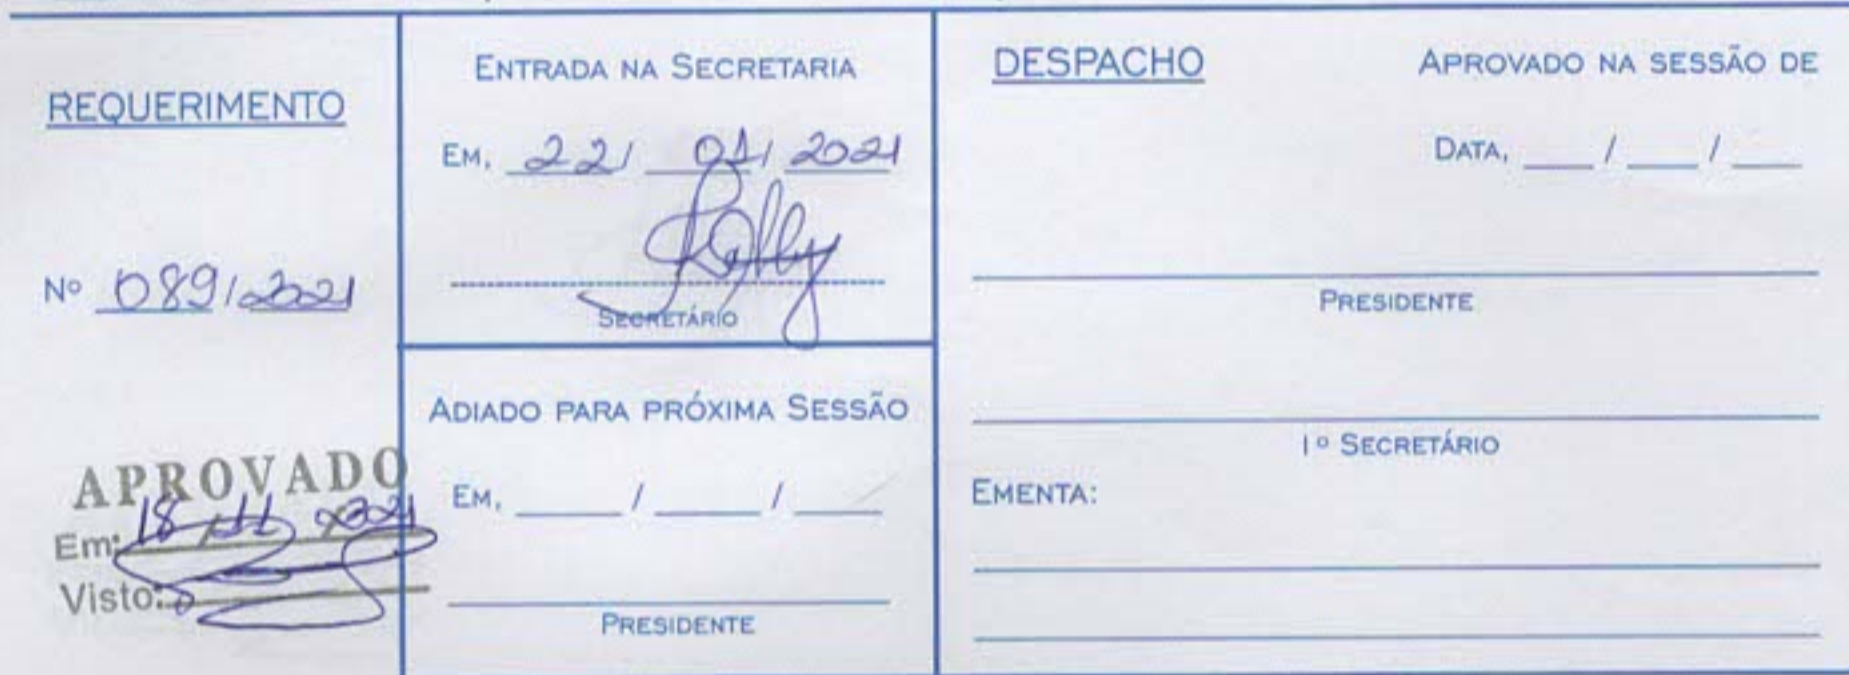 REQUERIMENTO
Nº 089/2021
APROVADO
Em: 18/11/2021
Visto:
ENTRADA NA SECRETARIA
EM, 22/ 01/ 2021
SECRETÁRIO
ADIADO PARA PRÓXIMA SESSÃO
EM, / /
PRESIDENTE
DESPACHO
APROVADO NA SESSÃO DE
DATA, / /
PRESIDENTE
1º SECRETÁRIO
EMENTA: